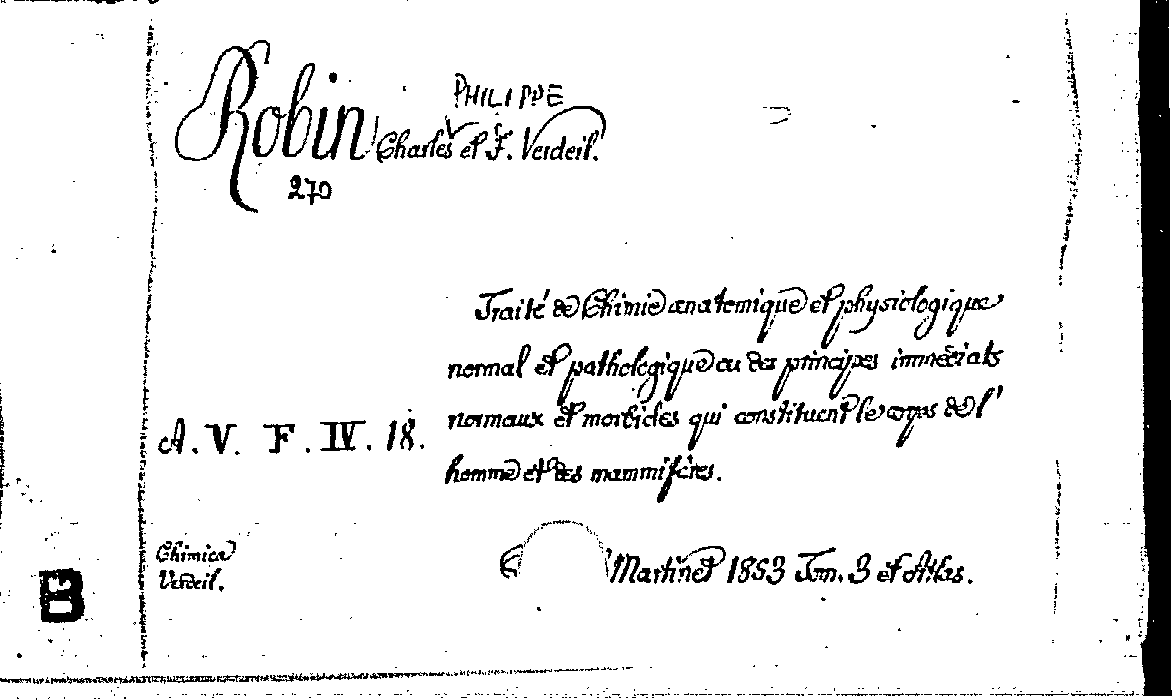 PHILIPPE
Robin Charles et F. Verdeil.
270
Traité de Chimie anatomique et physiologique
normal et pathologique ou des principes immédiats
normaux et morbides qui constituent le corps de l'
homme et des mammifères.
A. V. F. IV. 18.
Chimica
Verdeil.
Martinet 1853 Tom. 3 et Atlas.
B